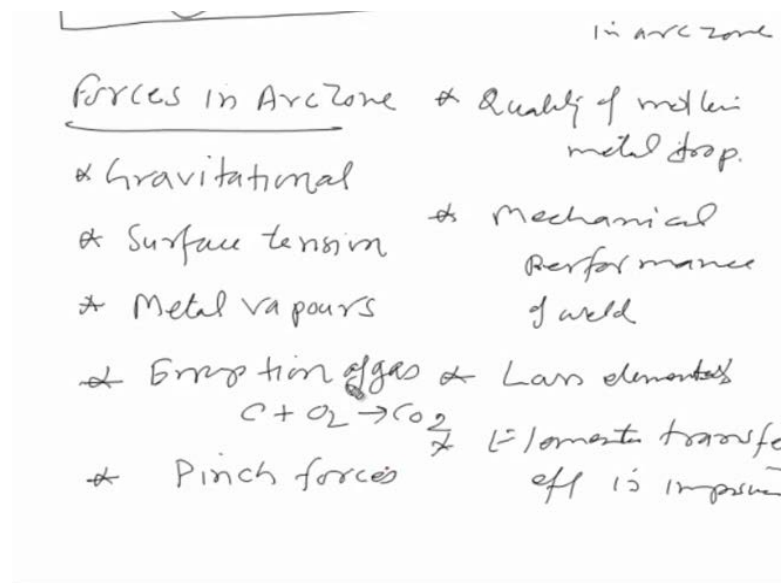 in arc zone
Forces in Arc Zone
* Gravitational
* Surface tension
* Metal vapours
* Eruption of gas
C + O2 → CO2
* Pinch forces
* Quality of molten
metal drop.
* Mechanical
Performance
of weld
* elements
* Element transfe
eff is